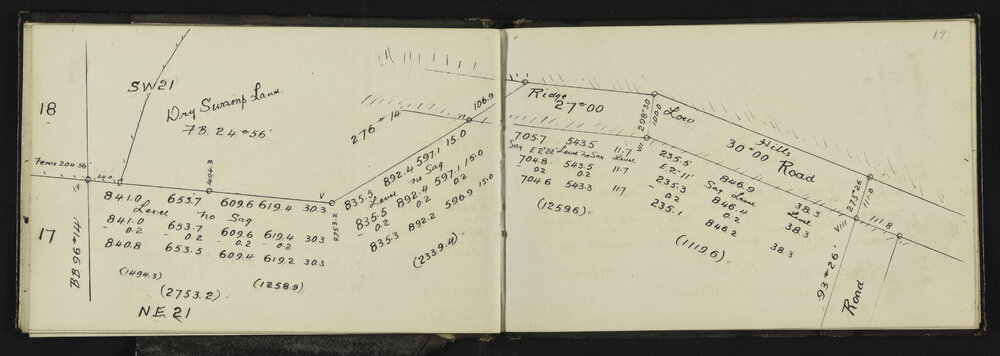 17
18
SW 21
Dry Swamp Land
FB 24°56'
Fence 204°56'
24.0
IV
494.3
V
841.0 653.7 609.6 619.4 30.3
Level no Sag
841.0 653.7 609.6 619.4 30.3
- 0.2 - 0.2 - 0.2 - 0.2
840.8 653.5 609.4 619.2 30.3
(1494.3) (1258.9)
(2753.2)
17
BB 96°14'
NE 21
2753.2
276°14'
VI
106.9
835.5 892.4 597.1 15.0
Level no Sag
835.5 892.4 597.1 15.0
- 0.2 0.2
835.3 892.2 596.9 15.0
(2339.4)
Ridge
27°00
298°30
100.0
Low
Hills
30°00 Road
VII
705.7 543.5 11.7
Sag E 2°22' Level no Sag Level
704.8 543.5 11.7
- 0.2 0.2
704.6 543.3 11.7
(1259.6)
235.5 846.9 38.3
E 2-11' Sag Level Level
235.3 846.4 38.3
- 0.2 0.2
235.1 846.2 38.3
(1119.6)
273°26
111.8
VIII
111.8
93°26'
Road